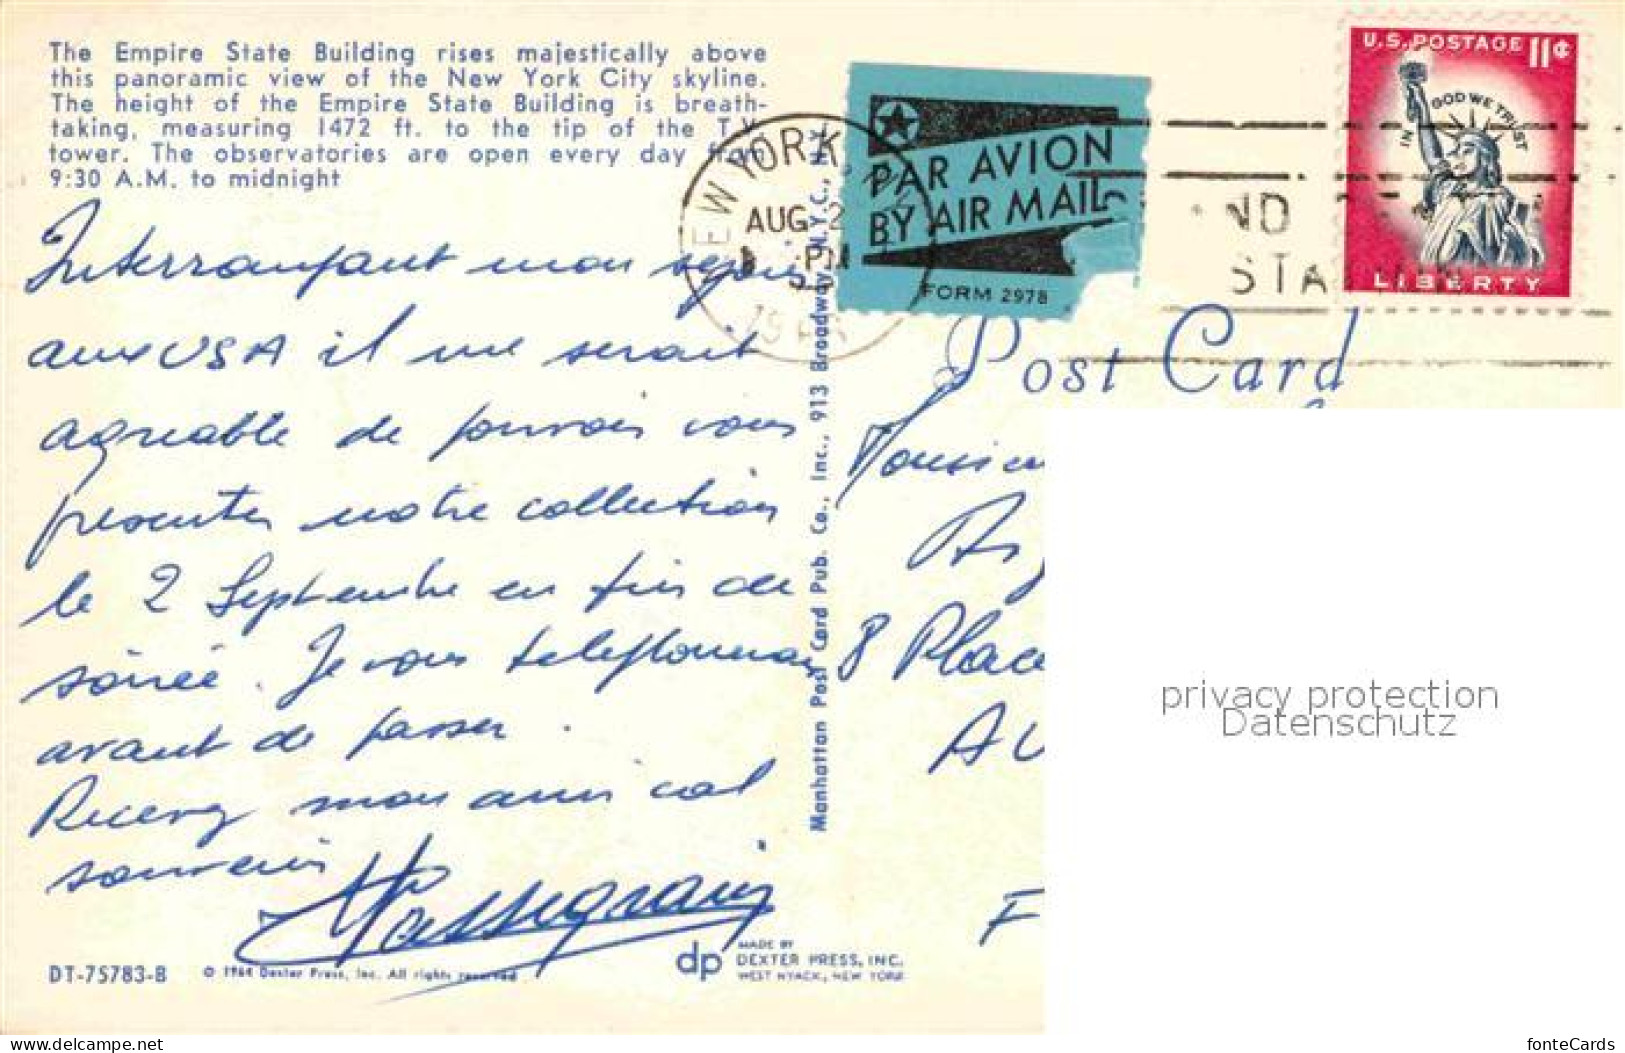 The Empire State Building rises majestically above
this panoramic view of the New York City skyline.
The height of the Empire State Building is breath-
taking, measuring 1472 ft. to the tip of the T.V.
tower. The observatories are open every day from
9:30 A.M. to midnight
NEW YORK, N.Y.
AUG 2
PM
PAR AVION
BY AIR MAIL
FORM 2978
U.S. POSTAGE 11¢
IN GOD WE TRUST
LIBERTY
Post Card
mon séjour
aux USA il me serait
agréable de pouvoir vous
présenter notre collection
le 2 Septembre en fin de
soirée. Je vous telephonerai
avant de passer.
Recevez mon amical
souvenir
Manhattan Post Card Pub. Co., Inc., 913 Broadway, N.Y.C., N.Y.
8 Place
privacy protection
Datenschutz
DT-75783-B
© 1964 Dexter Press, Inc. All rights reserved
dp MADE BY
DEXTER PRESS, INC.
WEST NYACK, NEW YORK
www.delcampe.net
fonteCards